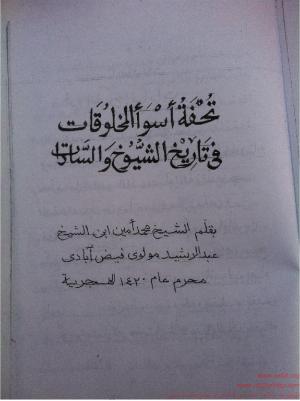 تحفة أسوأ المخلوقات
في تاريخ الشيوخ والسادات
بقلم الشيخ محمد أمين ابن الشيخ
عبدالرشيد مولوى فيض آبادى
محرم عام ١٤٢٠ الهجرية